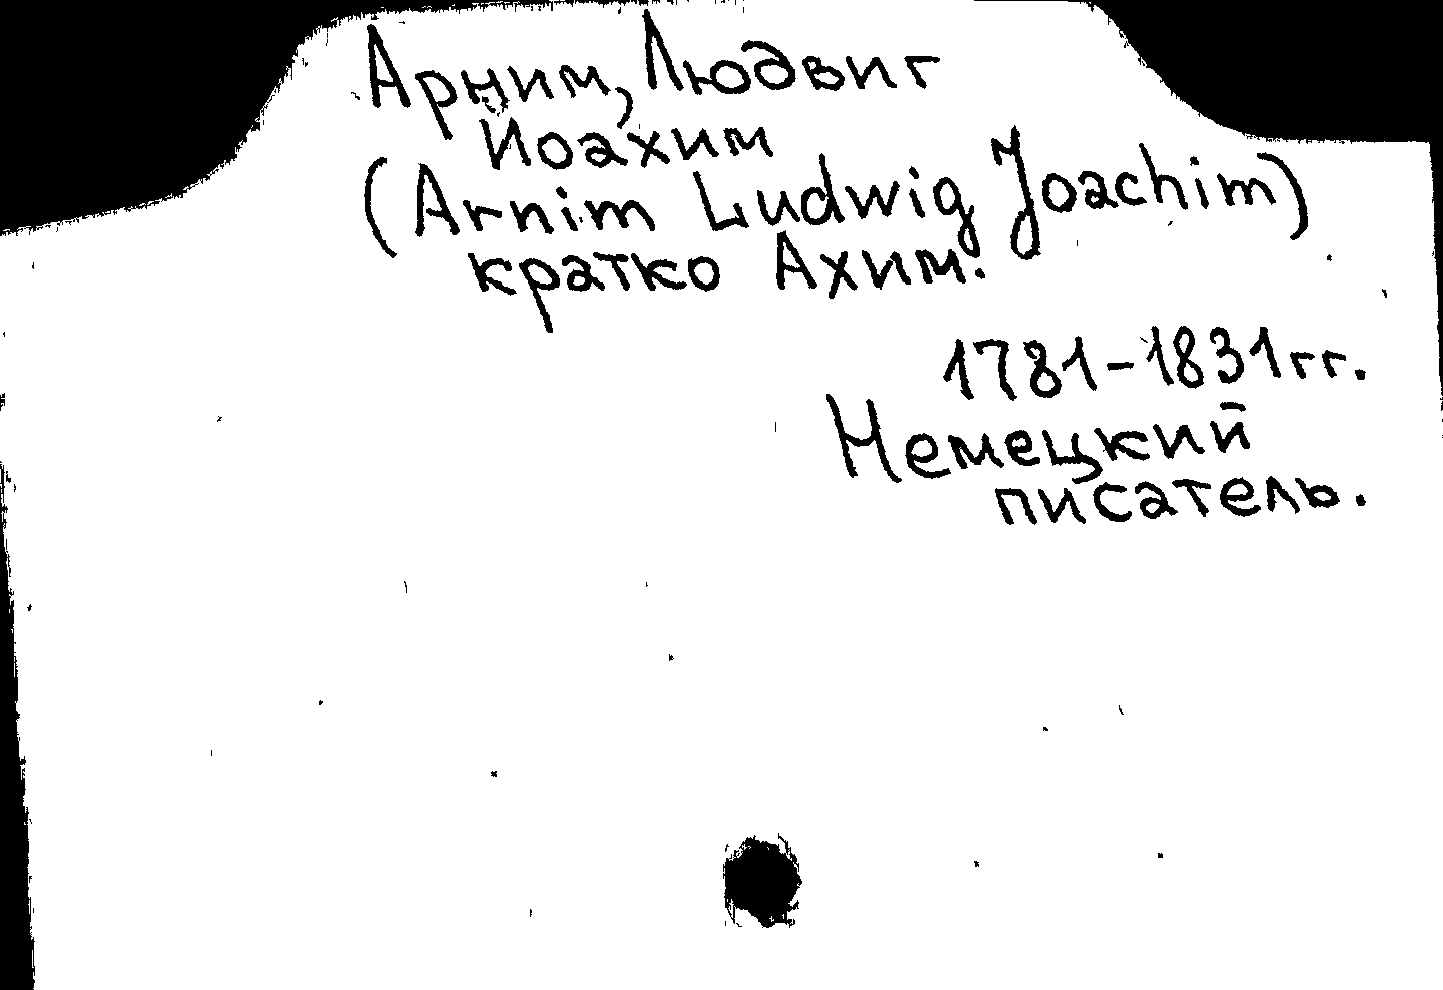 Арним, Людвиг
Йоахим
(Arnim Ludwig Joachim)
кратко Ахим.
1781-1831гг.
Немецкий
писатель.